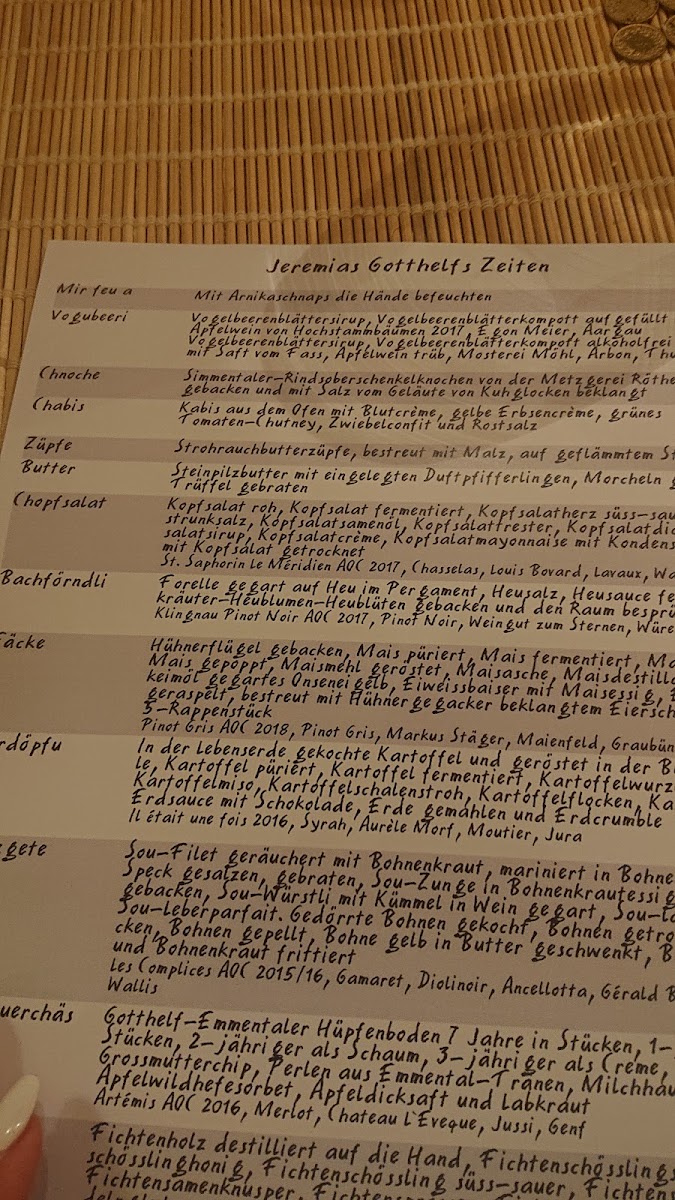 Jeremias Gotthelfs Zeiten
Mir feu a Mit Arnikaschnaps die Hände befeuchten
Vogubeeri Vogelbeerenblättersirup, Vogelbeerenblätterkompott auf gefüllt
Apfelwein von Hochstammbäumen 2017, Egon Meier, Aargau
Vogelbeerenblättersirup, Vogelbeerenblätterkompott alkoholfrei
mit Saft vom Fass, Apfelwein trüb, Mosterei Möhl, Arbon, Thu
Chnoche Simmentaler-Rindsoberschenkelknochen von der Metzgerei Röthe
gebacken und mit Salz vom Geläute von Kuhglocken beklangt
Chabis Kabis aus dem Ofen mit Blutcrème, gelbe Erbsencrème, grünes
Tomaten-Chutney, Zwiebelconfit und Rostsalz
Züpfe Strohrauchbutterzüpfe, bestreut mit Malz, auf geflämmtem St
Butter Steinpilzbutter mit eingelegten Duftpfifferlingen, Morcheln g
Trüffel gebraten
Chopfsalat Kopfsalat roh, Kopfsalat fermentiert, Kopfsalatherz süss-sau
strunksalz, Kopfsalatsamenöl, Kopfsalattrester, Kopfsalatdic
salatsirup, Kopfsalatcrème, Kopfsalatmayonnaise mit Kondens
mit Kopfsalat getrocknet
St. Saphorin le Méridien AOC 2017, Chasselas, Louis Bovard, Lavaux, Wa
Bachförndli Forelle gegart auf Heu im Pergament, Heusalz, Heusauce fe
kräuter-Heublumen-Heublüten gebacken und den Raum besprü
Klingnau Pinot Noir AOC 2017, Pinot Noir, Weingut zum Sternen, Würe
äcke Hühnerflügel gebacken, Mais püriert, Mais fermentiert, Ma
Mais gepöppt, Maismehl geröstet, Maisasche, Maisdestilla
keimöl gegarfes Onsenei gelb, Eiweissbaiser mit Maisessig,
geraspelt, bestreut mit Hühnergegacker beklangtem Eiersch
5-Rappenstück
Pinot Gris AOC 2018, Pinot Gris, Markus Stäger, Maienfeld, Graubün
rdöpfu In der Lebenserde gekochte Kartoffel und geröstet in der B
le, Kartoffel püriert, Kartoffel fermentiert, Kartoffelwurz
Kartoffelmiso, Kartoffelschalenstroh, Kartoffelflocken, Ka
Erdsauce mit Schokolade, Erde gemahlen und Erdcrumble
Il était une fois 2016, Syrah, Aurèle Morf, Moutier, Jura
gete Sou-Filet geräuchert mit Bohnenkraut, mariniert in Bohne
Speck gesalzen, gebraten, Sou-Zunge in Bohnenkrautessig
gebacken, Sou-Würstli mit Kümmel in Wein gegart, Sou-La
Sou-Leberparfait. Gedörrte Bohnen gekocht, Bohnen getro
cken, Bohnen gepellt, Bohne gelb in Butter geschwenkt, B
und Bohnenkraut frittiert
Les Complices AOC 2015/16, Gamaret, Diolinoir, Ancellotta, Gérald B
Wallis
uerchäs Gotthelf-Emmentaler Hüpfenboden 7 Jahre in Stücken, 1-
Stücken, 2-jähriger als Schaum, 3-jähriger als Crème,
Grossmutterchip, Perlen aus Emmental-Tränen, Milchhau
Apfelwildhefesorbet, Apfeldicksaft und Labkraut
Artémis AOC 2016, Merlot, Chateau L'Eveque, Jussi, Genf
Fichtenholz destilliert auf die Hand, Fichtenschössling
schösslinghonig, Fichtenschössling süss-sauer, Fichten
Fichtensamenknusper,